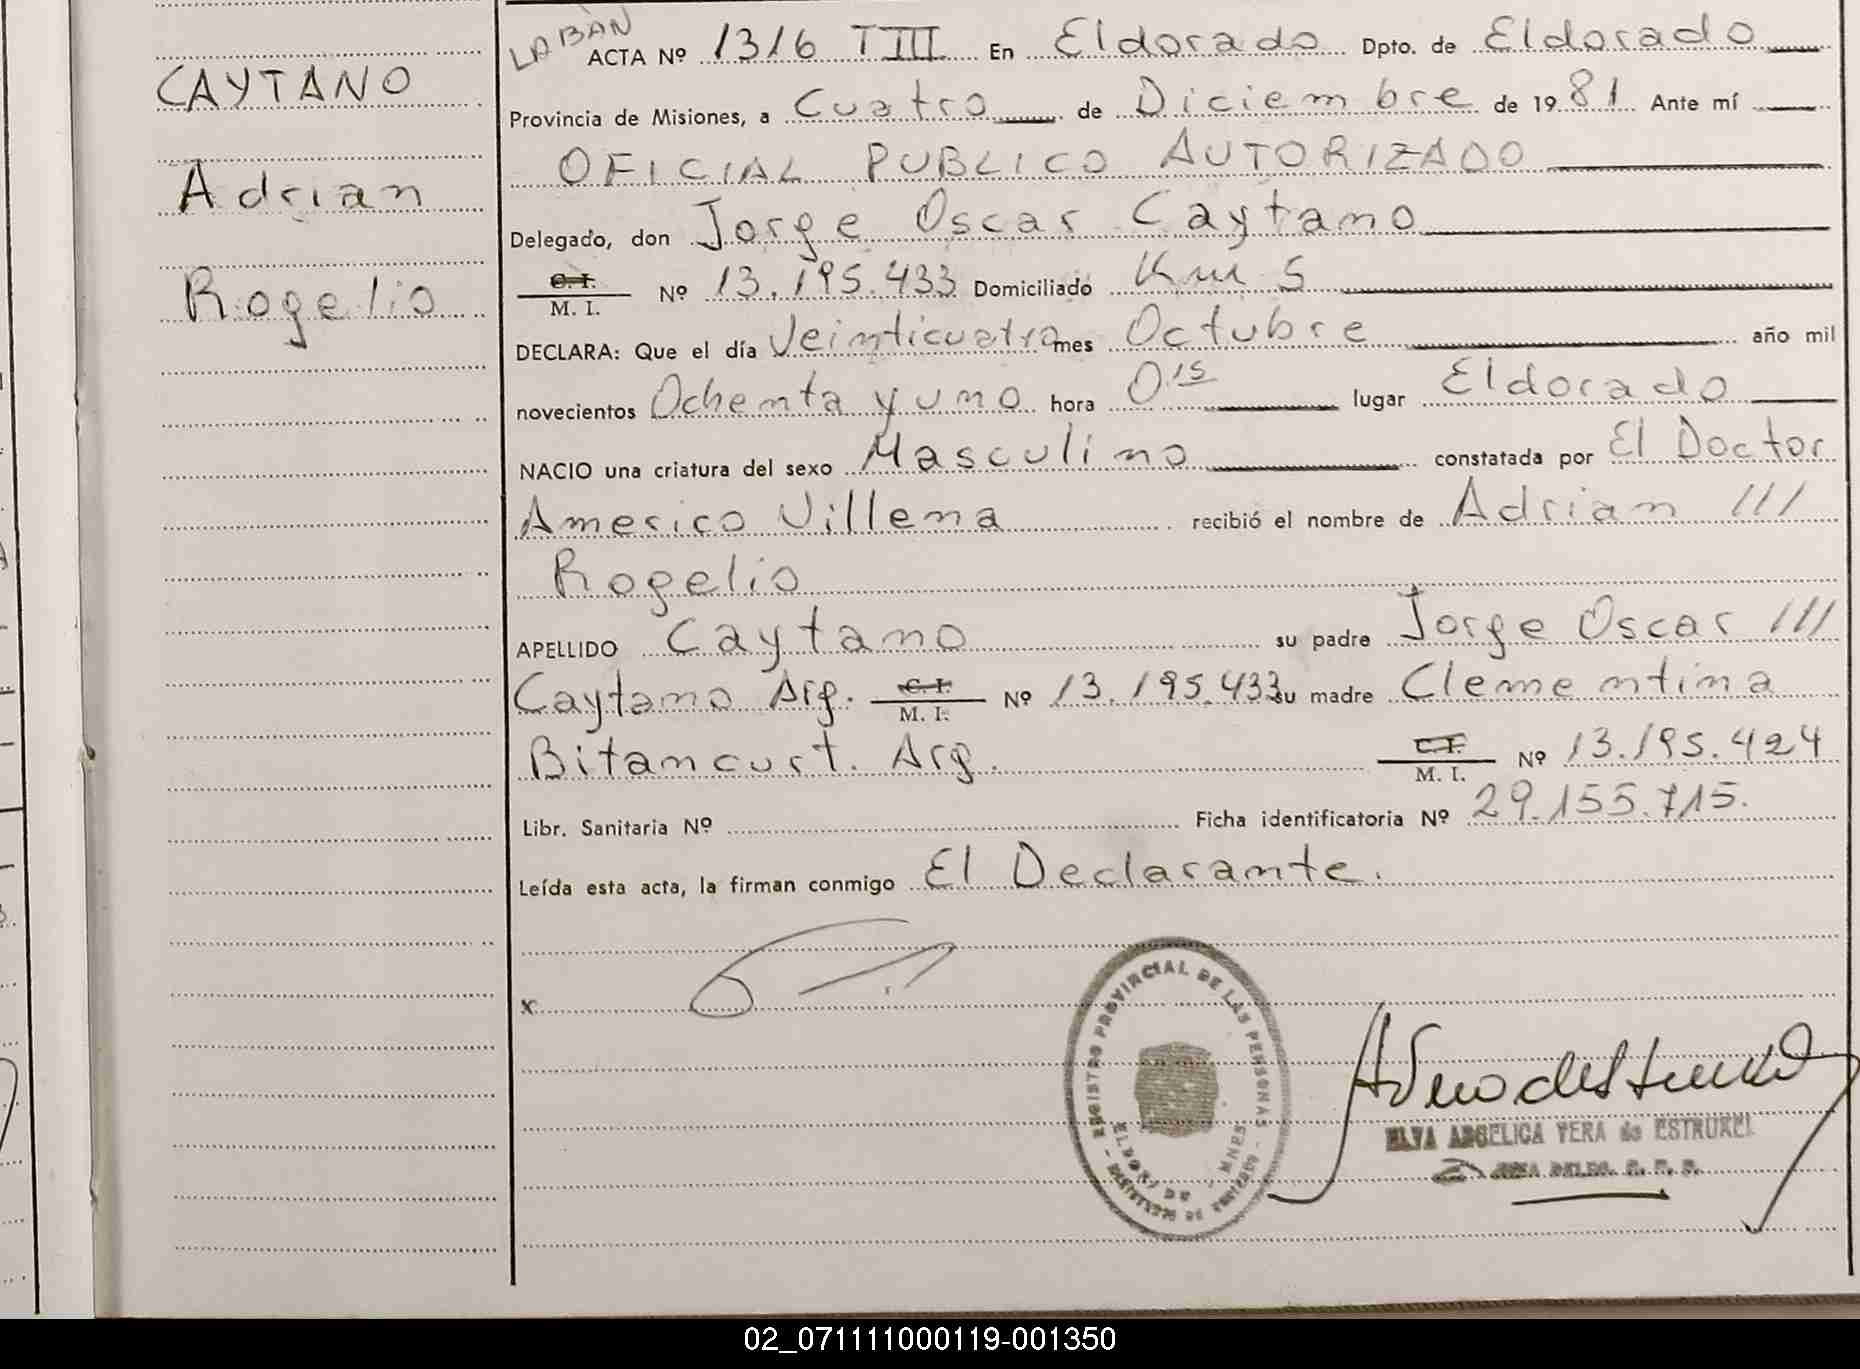 CAYTANO
Adrian
Rogelio
LABÀN
ACTA Nº 1316 TIII En Eldorado Dpto. de Eldorado
Provincia de Misiones, a Cuatro de Diciembre de 1981 Ante mí
OFICIAL PUBLICO AUTORIZADO
Delegado, don Jorge Oscar Caytano
C. I.
M. I. Nº 13.195.433 Domiciliado Km 5
DECLARA: Que el día Veinticuatro mes Octubre año mil
novecientos Ochenta y uno hora 0,15 lugar Eldorado
NACIO una criatura del sexo Masculino constatada por El Doctor
Americo Villena recibió el nombre de Adrian ///
Rogelio
APELLIDO Caytano su padre Jorge Oscar ///
Caytano Arg. C. I.
M. I. Nº 13.195.433 su madre Clementina
Bitancurt. Arg. C. I.
M. I. Nº 13.195.424
Libr. Sanitaria Nº Ficha identificatoria Nº 29.155.715.
Leída esta acta, la firman conmigo El Declarante.
x
REGISTRO PROVINCIAL DE LAS PERSONAS
ELDORADO - MNES.
ELVA ANGELICA VERA de ESTRUKEL
02_071111000119-001350